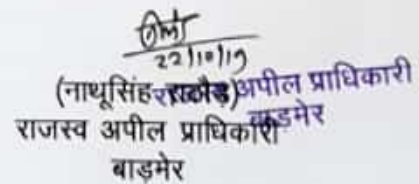 22/10/19
(नाथूसिंह राठौड़)
राजस्व अपील प्राधिकारी
बाड़मेर
राजस्व अपील प्राधिकारी
बाड़मेर